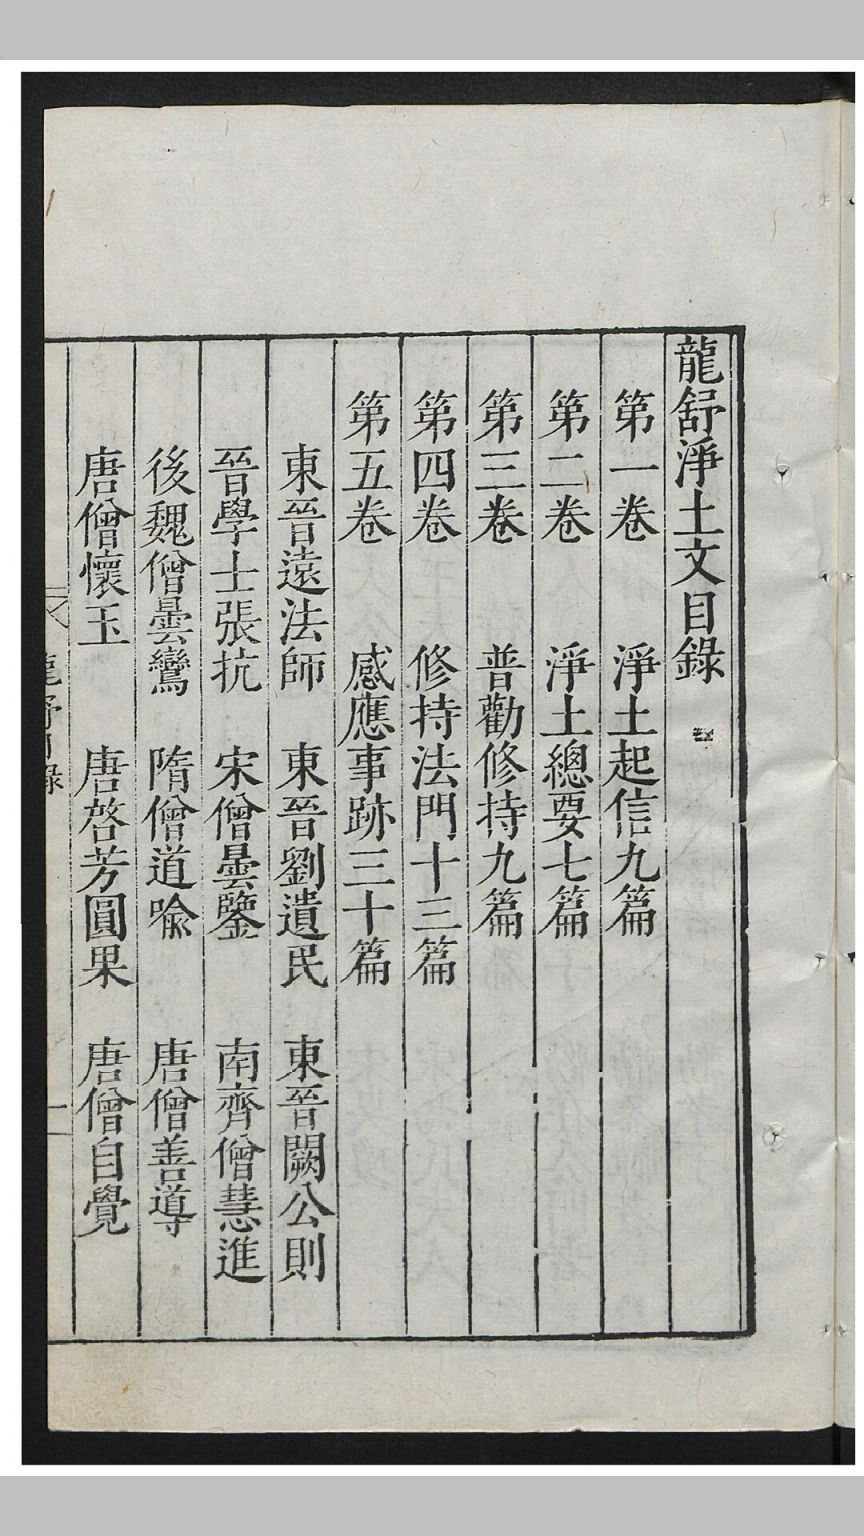 龍舒淨土文目錄
第一卷　淨土起信九篇
第二卷　淨土總要七篇
第三卷　普勸修持九篇
第四卷　修持法門十三篇
第五卷　感應事跡三十篇
東晉遠法師　東晉劉遺民　東晉闕公則
晉學士張抗　宋僧曇鑒　南齊僧慧進
後魏僧曇鸞　隋僧道喩　唐僧善導
唐僧懷玉　唐啓芳圓果　唐僧自覺
龍舒目錄　一